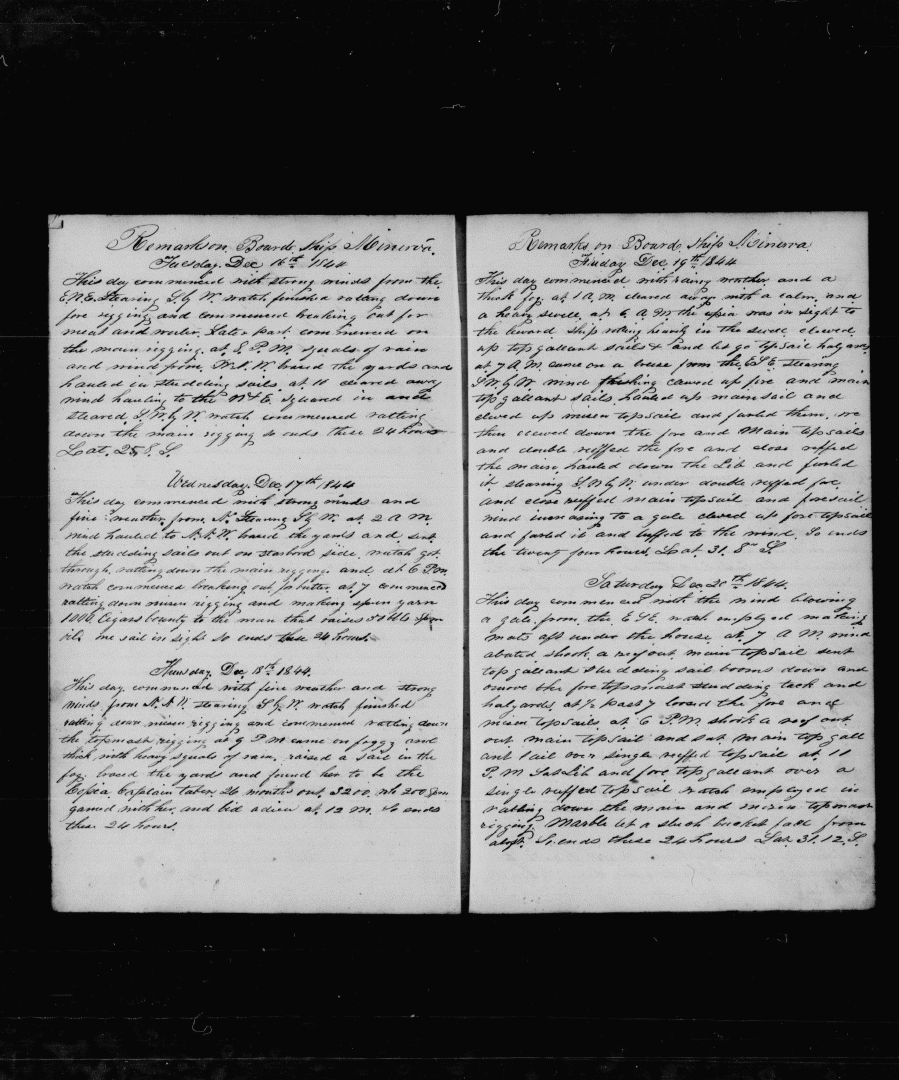 Remarks on Board Ship Minerva.
Tuesday Dec 16th 1844
This day commenced with strong winds from the
E.N.E. Stearing S. by W. watch finished ratling down
fore rigging and commenced breaking out for
meat and water. Later part commenced on
the main rigging. at 8. P.M. squals of rain
and wind from W.S.W. braced the yards and
hauled in studding sails. at 10 cleared away
wind hauling to the N & E. squared in and
steared S. by W. watch commenced ratling
down the main rigging so ends these 24 hours
Lat. 25. S.
Wednesday Dec 17th 1844
This day commenced with strong winds and
fine weather from N. Stearing S by W. at 2 A M
wind hauled to N.N.W. braced the yards and sent
the studding sails out on starbord side. watch got
through ratling down the main rigging and at 6 P.M.
watch commenced breaking out for butter. at 7 commenced
ratling down mizen rigging and making spun yarn
1000 Cigars bounty to the man that raises 50 bbls Spm
oil, one sail in sight so ends these 24 hours.
Thursday Dec 18th 1844.
This day commenced with fine weather and strong
winds from N.N.W. stearing S by W. watch finished
ratling down mizen rigging and commenced ratling down
the topmast rigging at 9 P M came on foggy and
thick with heavy squals of rain. raised a sail in the
fog. braced the yards and found her to be the
Captain Taber 26 months out. 3200. wh 200 Spm
gamed with her, and bid adieu at 12 M. So ends
these 24 hours.
Remarks on Board Ship Minerva
Friday Dec 19th 1844
This day commenced with rainy weather and a
thick fog. at 1 A.M. cleared away with a calm, and
a heavy swell. at 6 A.M the was in sight to
the leward. ship rolling heavy in the swell clewed
up top gallant sails & and let go topsail halyards
at 7 A.M. came on a breeze from the E.S.E. stearing
S W. by W. wind clewed up fore and main
top gallant sails hauled up mainsail and
clewed up mizen topsail and furled them. we
then clewed down the fore and Main topsails
and double reffed the fore and close reffed
the main. hauled down the Lib and furled
it stearing S.W. by W. under double reffed fore,
and close reffed main topsail and foresail
wind increasing to a gale clewed up fore topsail
and furled it and luffed to the wind. So ends
the twenty four hours, Lat at. 31. 8m S.
Saturday Dec 20th 1844.
This day commenced with the wind blowing
a gale from the E.S.E. watch employed making
mats aft under the house. at 7 A M wind
abated shook a reef out main topsail sent
top gallant studding sail booms down and
unrove the fore topmast studding tack and
halyards. at ½ past 7 loosed the fore and
mizen topsails at 6 P.M. shook a reef out
out main topsail and sat main top gall
ant sail over single reffed topsail at 11
P.M Sat Lib and fore top gallant over a
single reffed topsail watch employed in
ratling down the main and mizen topmast
rigging. Marble let a slush bucket fall from
aloft. So ends these 24 hours Lat. 31. 12. S.